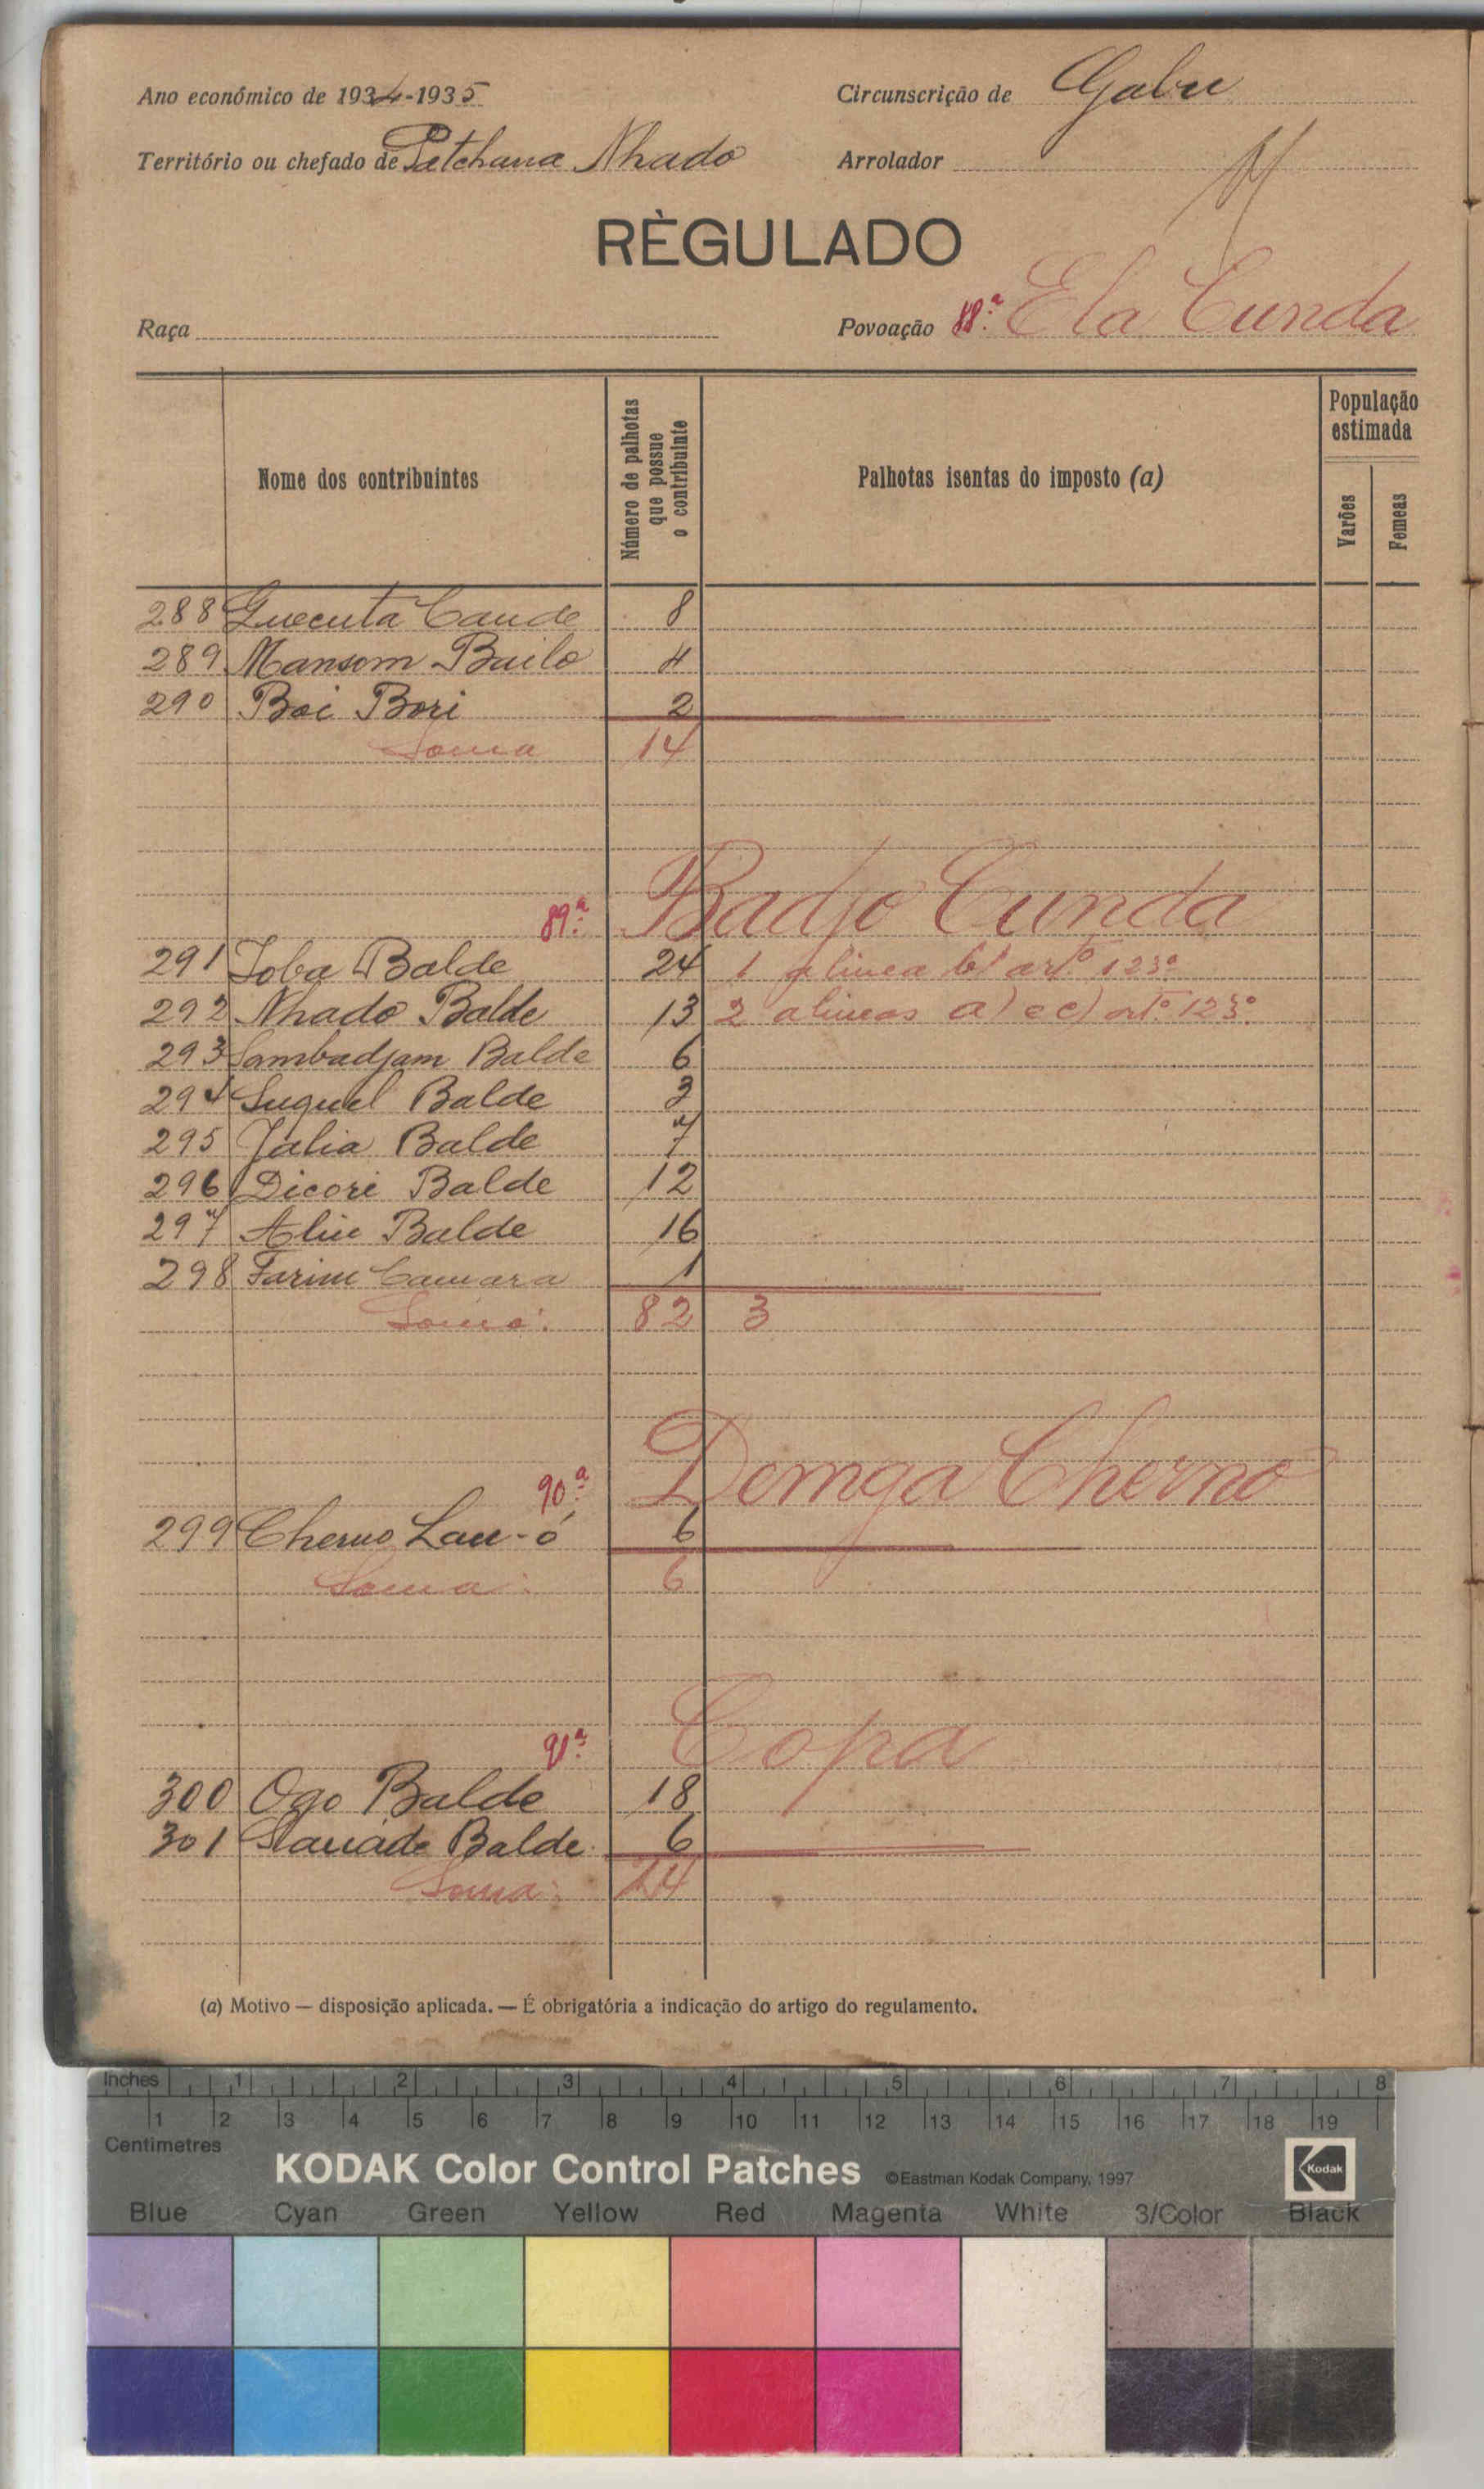 Ano económico de 1934-1935
Circunscrição de Gabu
Território ou chefado de Patchana Nhado
Arrolador
RÈGULADO
Raça
Povoação 88.ª Ela Cunda
Nome dos contribuintes
Número de palhotas que possue o contribuinte
Palhotas isentas do imposto (a)
População estimada
Varões
Femeas
288 Quecuta Cande 8
289 Mansom Bailo 4
290 Boi Bori 2
Soma 14
89.ª Badjo Cunda
291 Joba Balde 24 1 alinea b) art.º 123º
292 Nhado Balde 13 2 alineas a) e c) art.º 123º
293 Sambadjam Balde 6
294 Suguel Balde 3
295 Jalia Balde 7
296 Dicori Balde 12
297 Aliu Balde 16
298 Farim Camara 1
Soma: 82 3
90.ª Demga Cherno
299 Cherno Lau-ó 6
Soma: 6
91.ª Copa
300 Ogo Balde 18
301 Balde 6
Soma: 24
(a) Motivo — disposição aplicada. — É obrigatória a indicação do artigo do regulamento.
Inches 1 2 3 4 5 6 7 8
1 2 3 4 5 6 7 8 9 10 11 12 13 14 15 16 17 18 19
Centimetres
KODAK Color Control Patches ©Eastman Kodak Company, 1997 Kodak
Blue Cyan Green Yellow Red Magenta White 3/Color Black